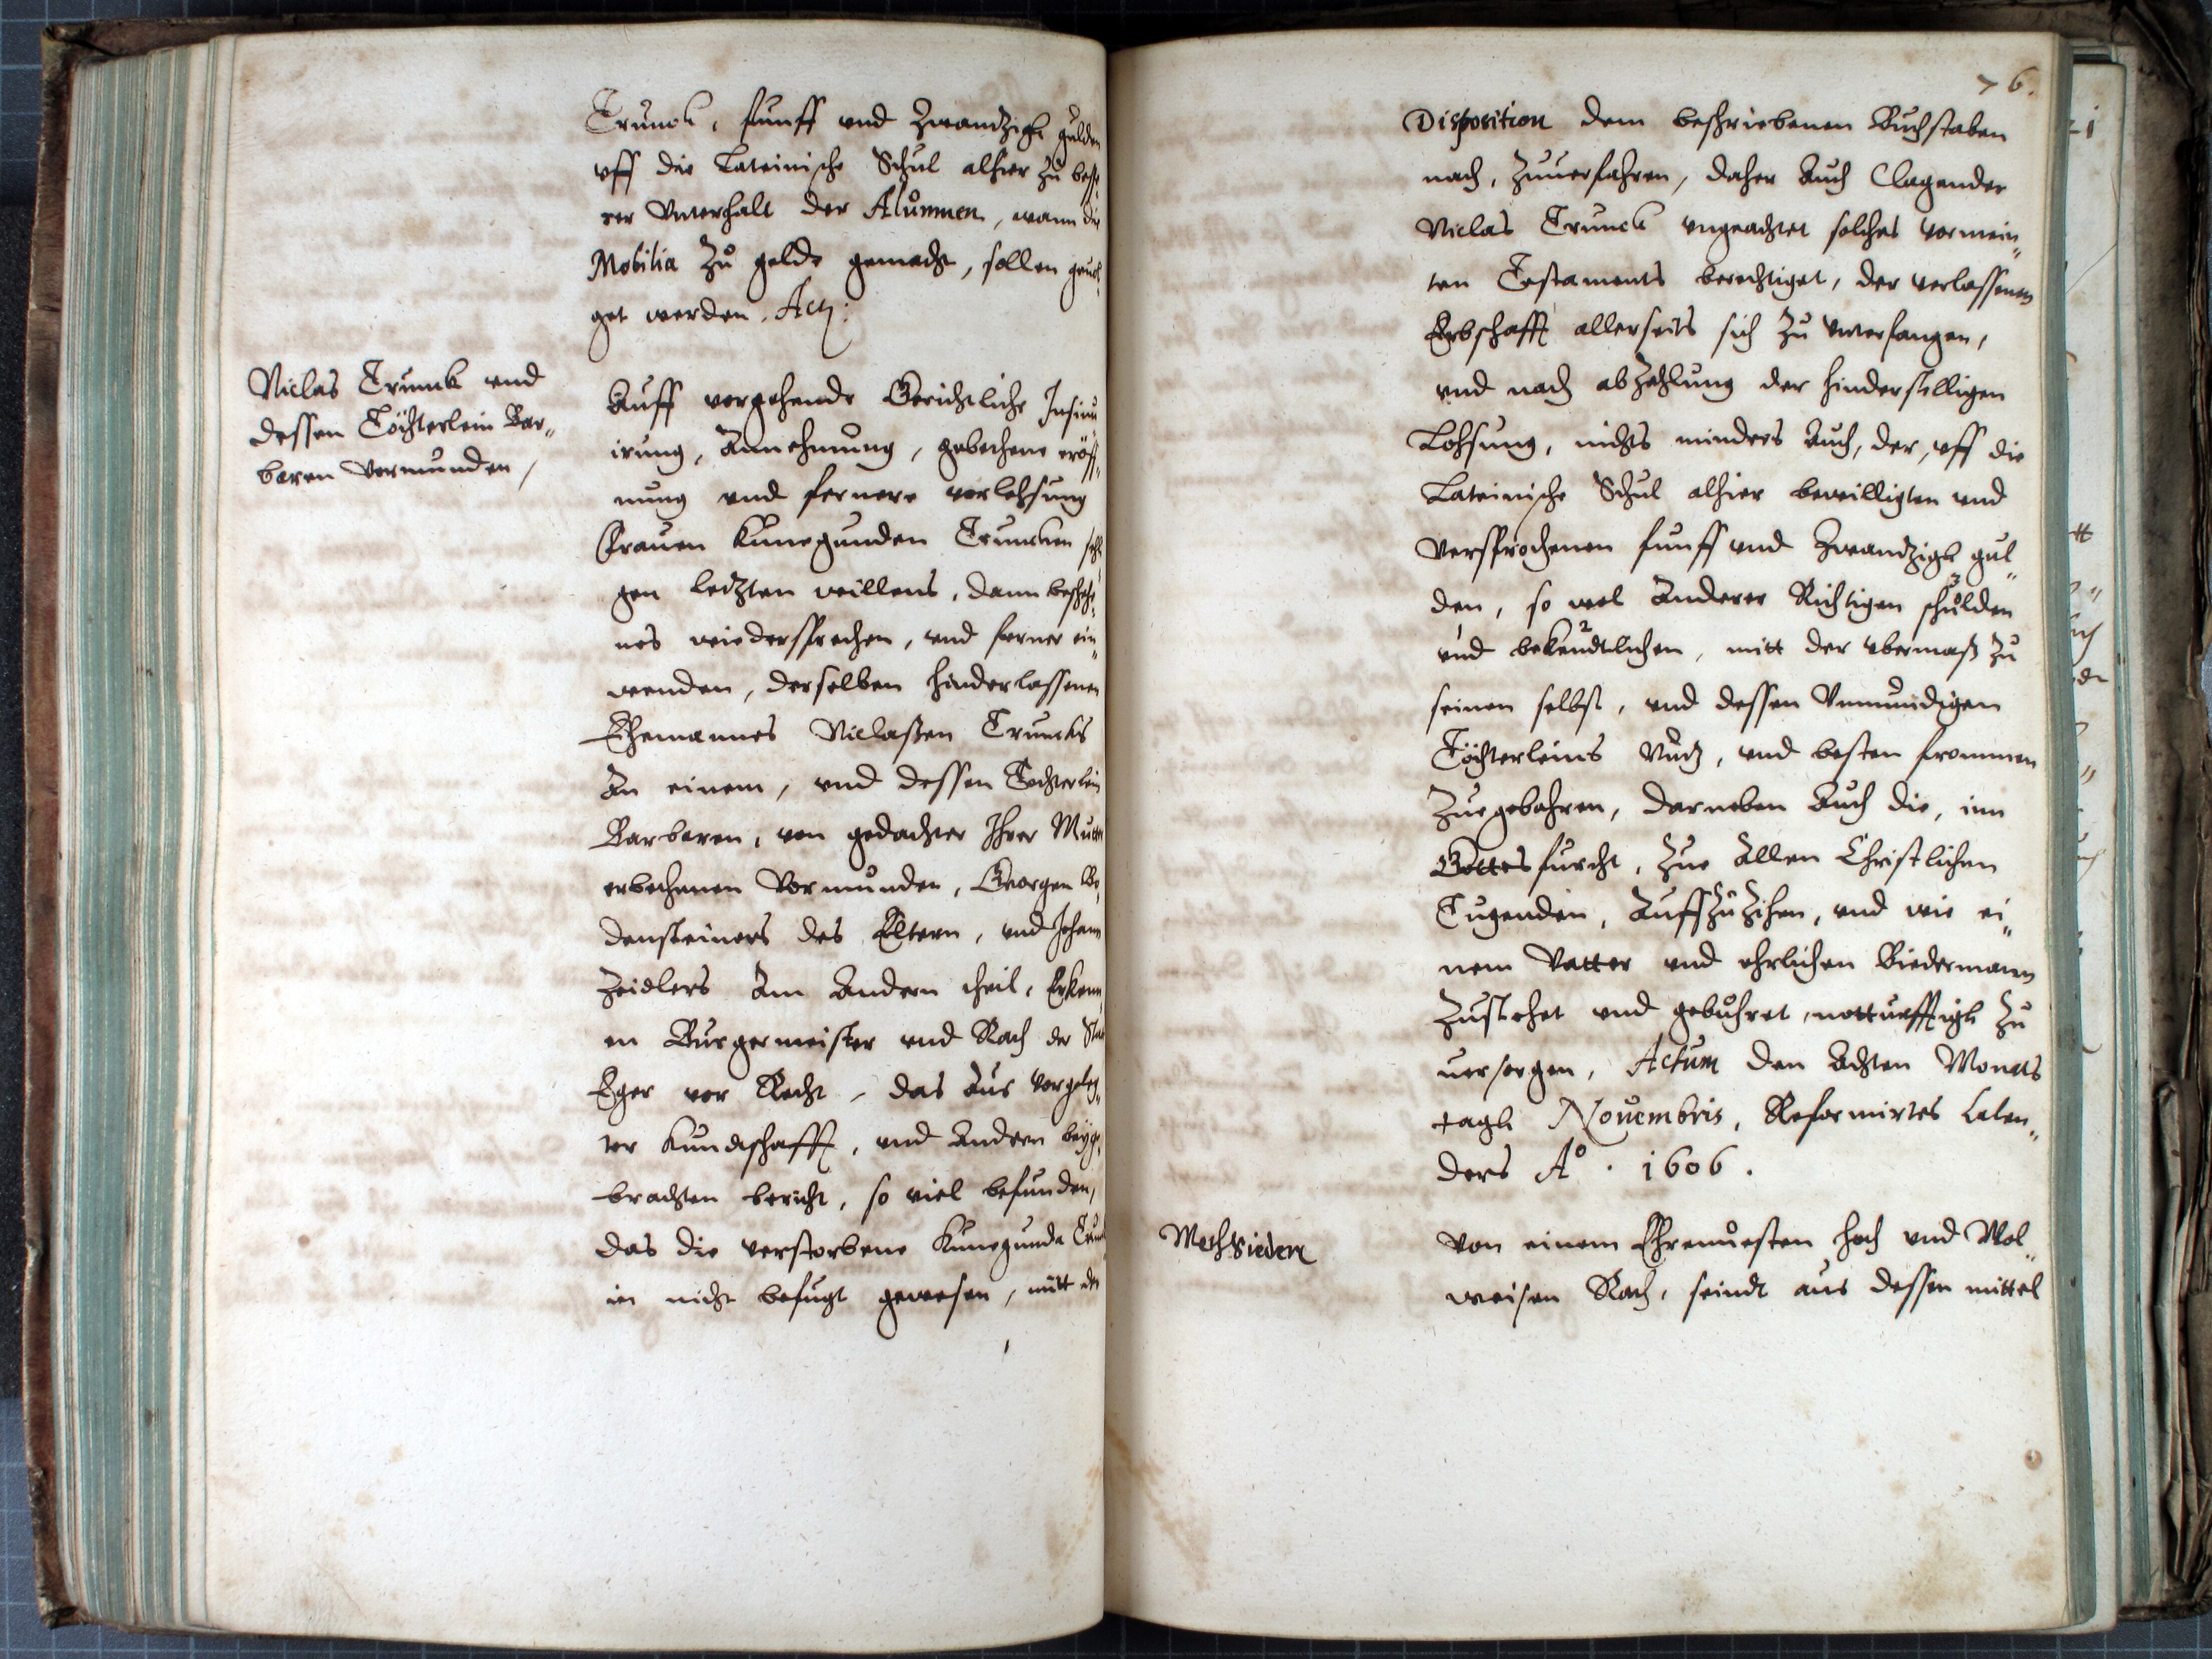 Trunck, funff vnd Zwandzigk gulden
vff die Lateinische Schul alhier zu besse¬
rer Vnterhalt der Alumnen, wann die
Mobilia Zu gelde gemacht, sollen
get werden. Act:
Niclas Trunck vnd
dessen Töchterlein Bar„
baren Vormunden,
Auff vorgehende Gerichtliche Insinu
irung, Annehmung, gebethene eröff„
nung vnd fernere verlehsung
Frauen Kunegunden Truncken seli
gen letzten willens, dann beschehe„
nes wiedersprechen, vnd ferner ein„
wenden, derselben hinderlassenen
Ehemannes Niclaßen Truncks
An einem, vnd dessen Tochterlein
Barbaren, von gedachter Ihrer Mutter
erbethenen Vormunden, Georgen We„
densteiners des Eltern, vnd Johann
Zeidlers Am Andern theil, Erkenn„
en Burgermeister vnd Rath der Stat
Eger vor Recht, das Aus vorgeleg„
ter Kundschafft, vnd Andern beyge„
brachten bericht, so viel befunden,
das die verstorbene Kunegunda Trunck
in nicht befugt gewesen, mitt der
76.
Disposition dem beschriebenen Buchstaben
nach, Zuuerfahren, daher Auch Clagender
Niclas Trunck vngeachtet solches vermein„
ten Testaments berechtiget, der verlassenen
Erbschafft allerseits sich Zu vnterfangen,
vnd nach abZahlung der hinderstelligen
Lohsung, nichts minders Auch, der, vff die
Lateinische Schul alhier bewilligten vnd
Versprochenen funff vnd Zwandzigk gul„
den, so wol Anderer Richtigen 3 schulden
1 vnd 2 bekendtlichen, mitt der vbermaß Zu
seinen selbst, vnd dessen Vnmundigen
Töchterleins Nutz, vnd besten frommen
Zuegebahren, darneben Auch die, inn
Gottesfurcht, Zue Allen Christlichen
Tugenden, AuffzuZihen, vnd wie ei„
nem Vatter vnd ehrlichen Biedermann
Zustehet vnd gebuhret, notturfftigk Zu
uersorgen, Actum den Achten Monats
tagk Nouembris, Reformirtes Calen„
ders Aº. 1606.
Methsiedere
Von einem Ehrnuesten hoch vnd Wol„
weisen Rath, seindt aus dessen mittel